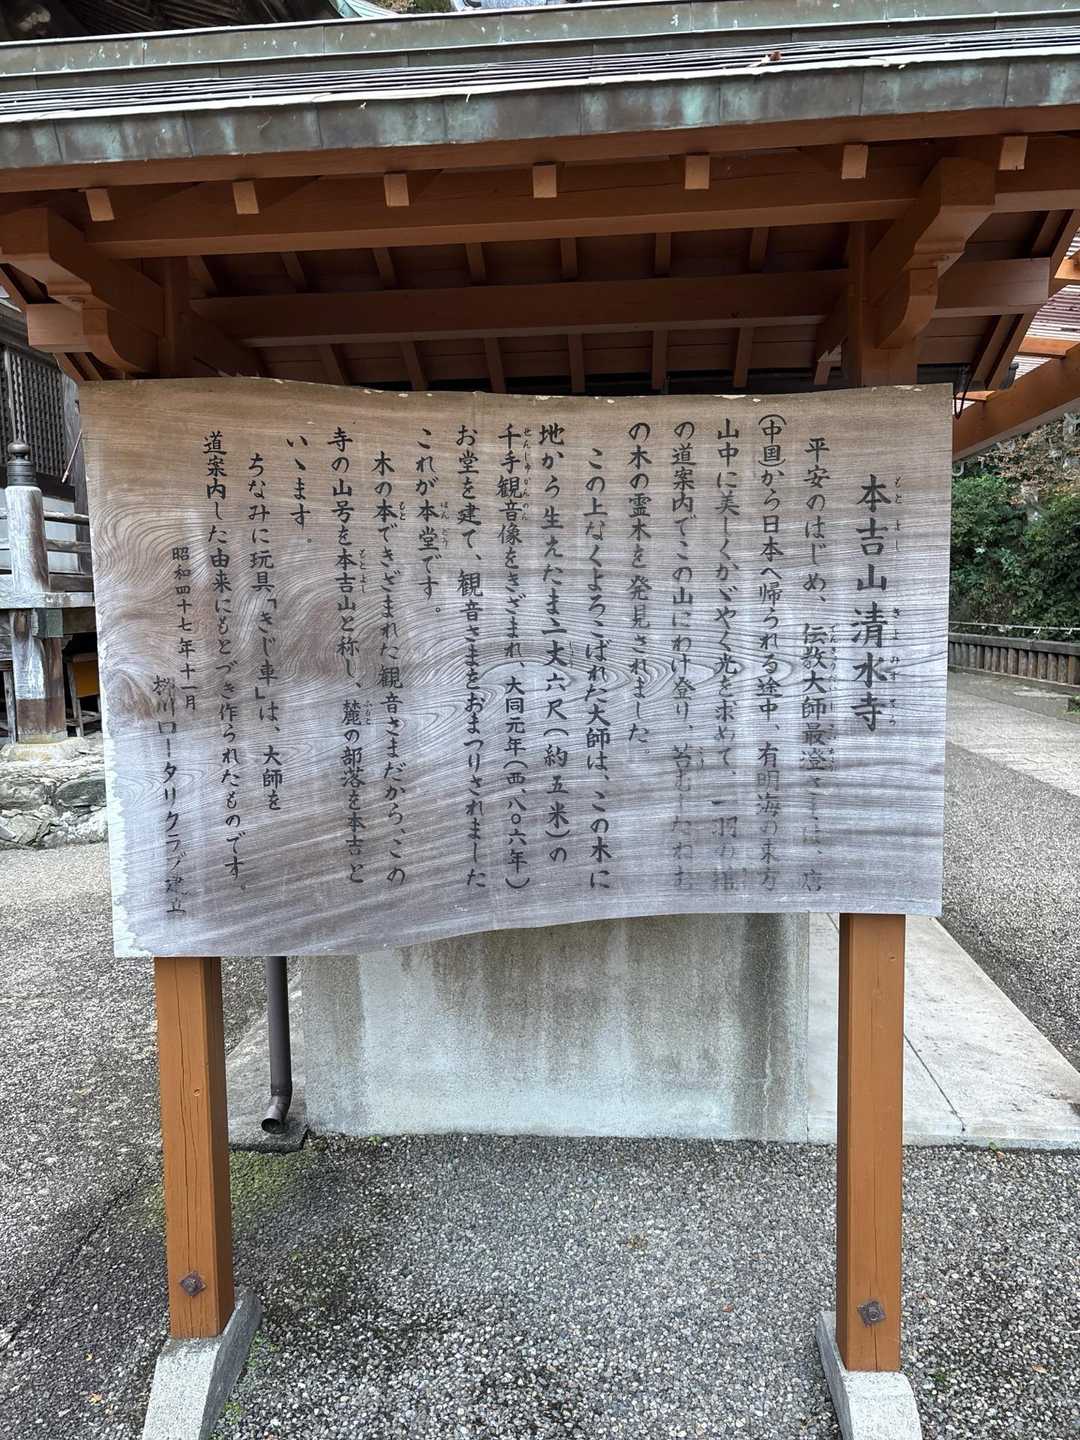 本吉山 清水寺
平安のはじめ、伝教大師最澄さまは、唐
(中国)から日本へ帰られる途中、有明海の東方
山中に美しくかゞやく光を求めて、一羽の雉
の道案内でこの山にわけ登り、苔むしたねむ
の木の霊木を発見されました。
この上なくよろこばれた大師は、この木に
地から生えたまゝ一丈六尺(約五米)の
千手観音像をきざまれ、大同元年(西、八〇六年)
お堂を建て、観音さまをおまつりされました
これが本堂です。
木の本できざまれた観音さまだから、この
寺の山号を本吉山と称し、麓の部落を本吉と
いゝます。
ちなみに玩具「きじ車」は、大師を
道案内した由来にもとづき作られたものです。
昭和四十七年十一月
柳川ロータリクラブ建立